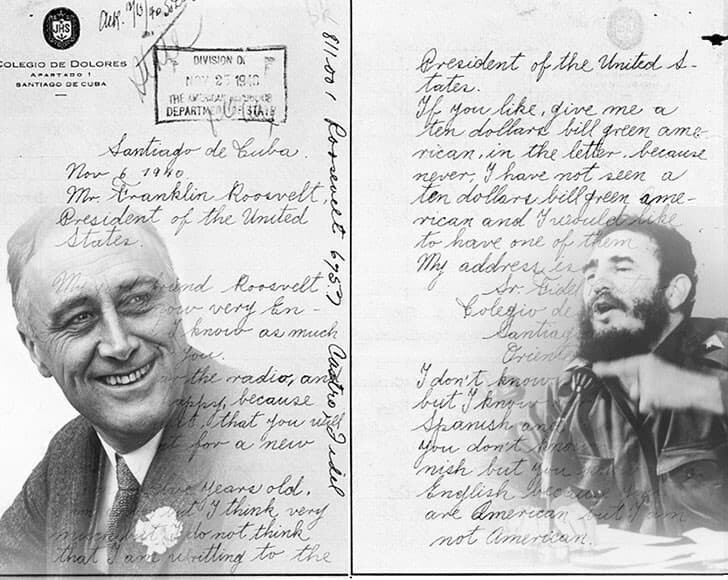 JHS
COLEGIO DE DOLORES
APARTADO 1
SANTIAGO DE CUBA
DIVISION OF
NOV 27 1940
THE AMERICAN REPUBLICS
DEPARTMENT OF STATE
811.001 Roosevelt
Castro, Fidel
Santiago de Cuba.
Nov 6 1940.
Mr. Franklin Roosevelt,
President of the United
States.
friend Roosevelt
very En-
I know as much
you.
the radio, an
because
that you will
for a new
years old.
I think very
do not think
that I am writting to the
President of the United S-
tates.
If you like, give me a
ten dollars bill green ame-
rican, in the letter, because
never, I have not seen a
ten dollars bill green ame-
rican and I would like
to have one of them
My address is
Sr. Fidel
Colegio de
Santiag
Oriente
I don't know
but I know
Spanish and
you don't
nish but you
English because
are American but I am
not American.